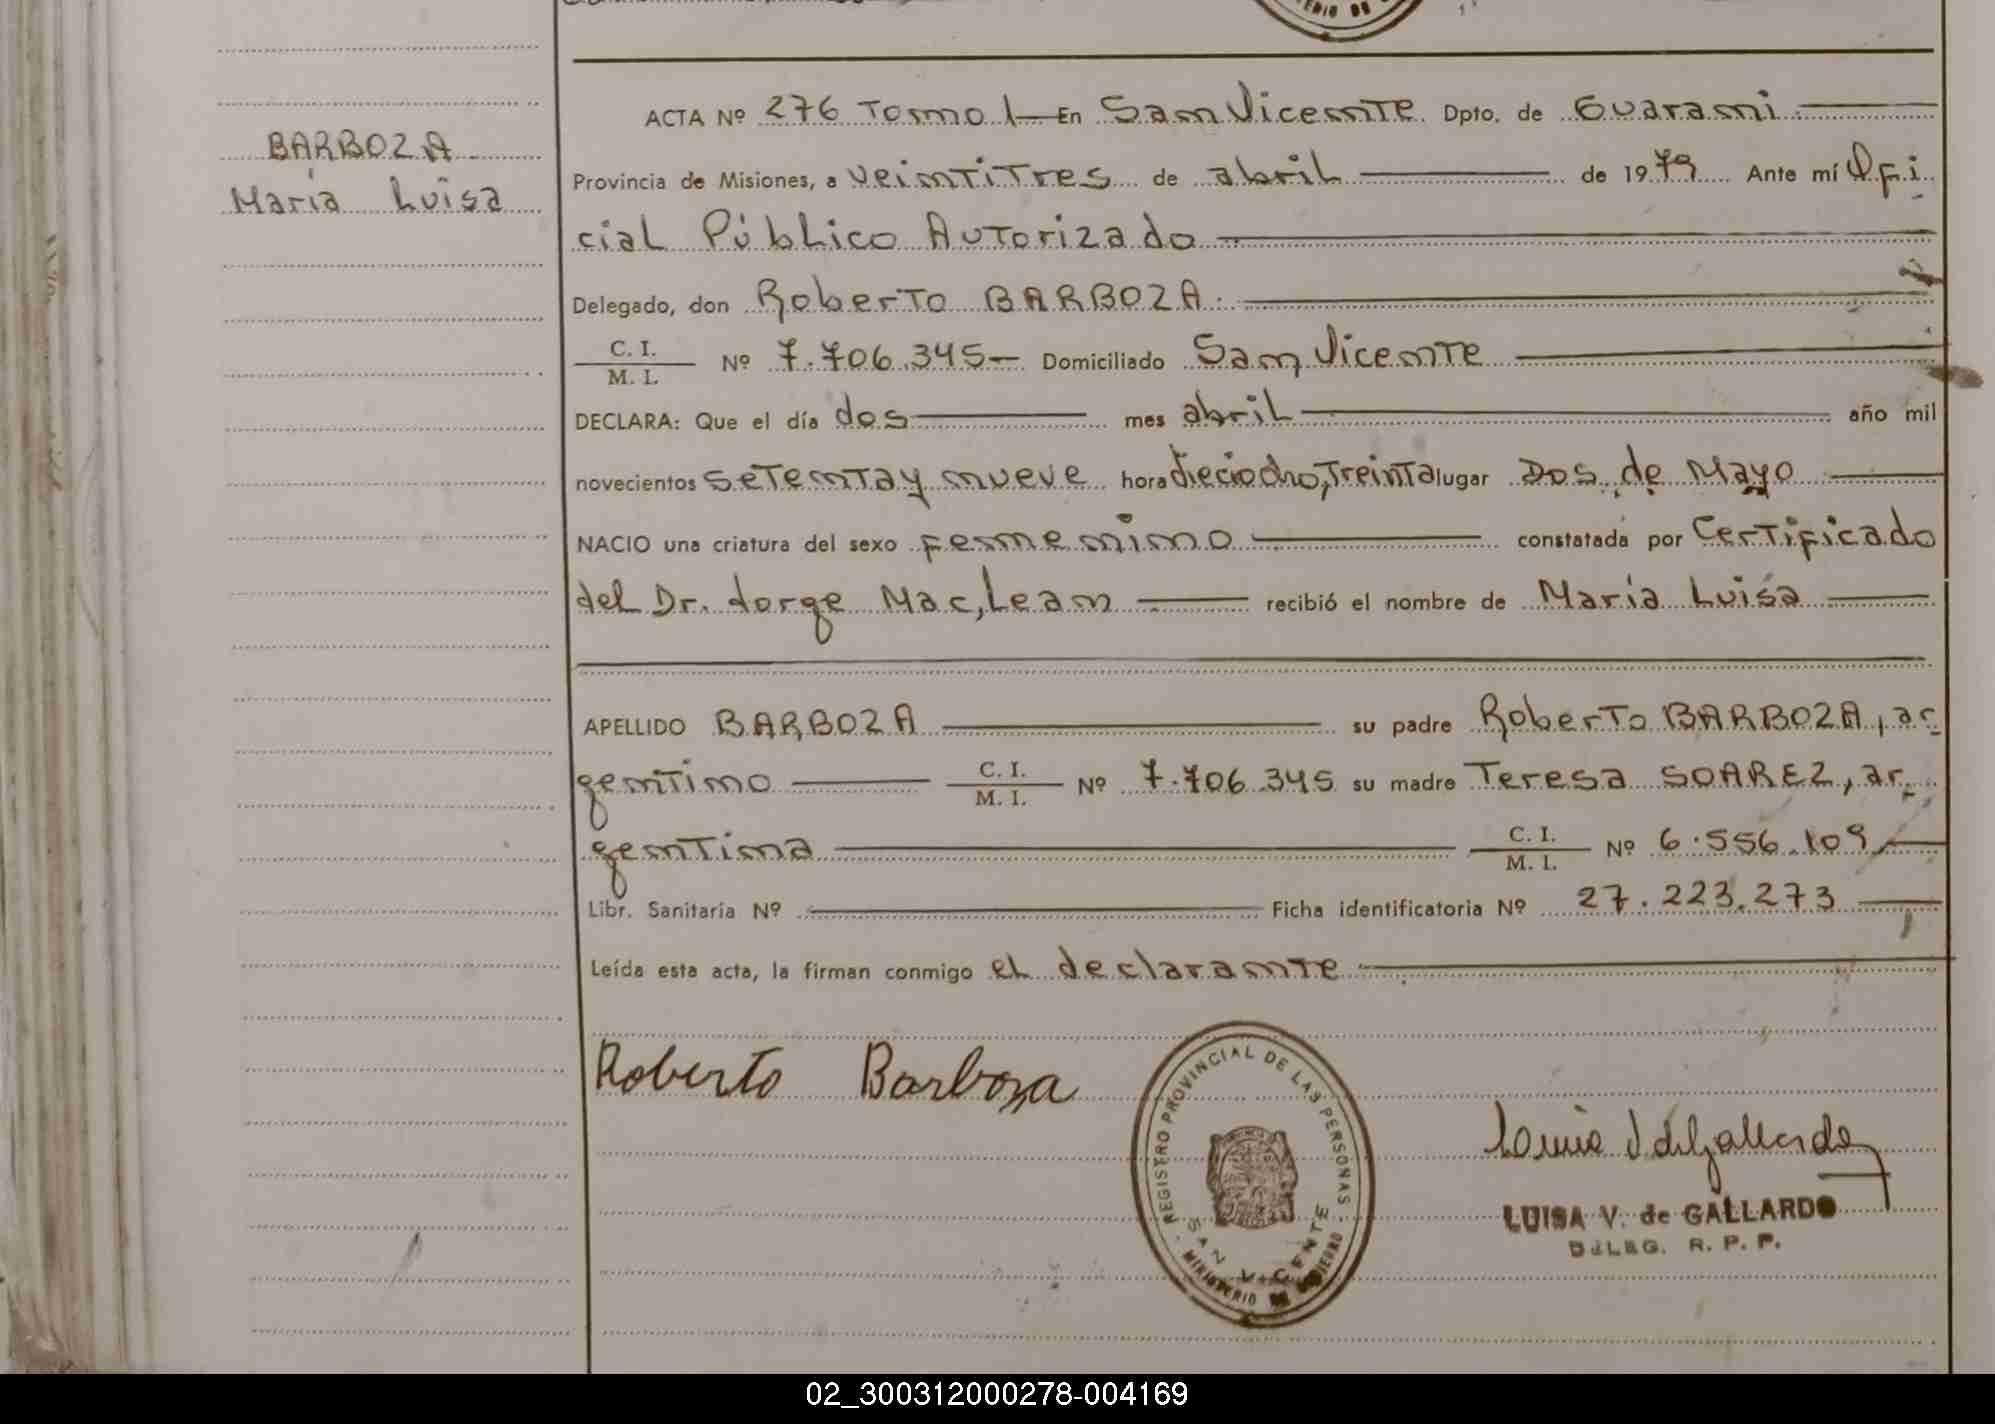 BARBOZA
María Luisa
ACTA Nº 276 Tomo I — En San Vicente Dpto. de Guaraní
Provincia de Misiones, a veintitres de abril de 1979 Ante mí Ofi
cial Público Autorizado
Delegado, don Roberto BARBOZA.
C. I.
M. I. Nº 7.706.345 — Domiciliado San Vicente
DECLARA: Que el día dos mes abril año mil
novecientos setenta y nueve hora dieciocho, treinta lugar Dos de Mayo
NACIO una criatura del sexo femenino constatada por Certificado
del Dr. Jorge Mac, Lean recibió el nombre de María Luisa
APELLIDO BARBOZA su padre Roberto BARBOZA, ar
gentino C. I. M. I. Nº 7.706.345 su madre Teresa SOAREZ, ar
gentina C. I. M. I. Nº 6.556.109
Libr. Sanitaria Nº Ficha identificatoria Nº 27.223.273
Leída esta acta, la firman conmigo el declarante
Roberto Barboza
REGISTRO PROVINCIAL DE LAS PERSONAS
SAN VICENTE
MINISTERIO DE GOBIERNO
LUISA V. de GALLARDO
DELEG. R. P. P.
02_300312000278-004169